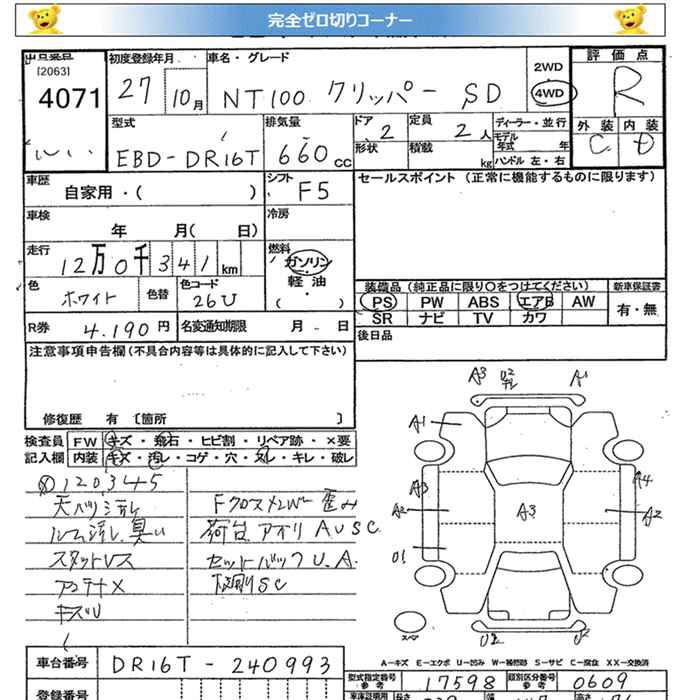 完全ゼロ切りコーナー
出品番号 初度登録年月 車名・グレード 2WD 評価点
[2063]
4071 27 10月 NT100 クリッパー SD 4WD R
型式 排気量 ドア 定員 ディーラー・並行 外装 内装
EBD-DR16T 660cc 2 2人 モデル年式 年 C D
形状 積載 kg ハンドル 左・右
車歴 シフト セールスポイント (正常に機能するものに限ります)
自家用・( ) F5
車検 冷房
年 月( 日)
走行 燃料
12万0千341km ガソリン
色 色コード 軽油 装備品 (純正品に限り○をつけてください) 新車保証書
ホワイト 色替 26U ( ) PS PW ABS エアB AW 有・無
SR ナビ TV カワ
R券 4.190円 名変通知期限 月 日 後日品
注意事項申告欄(不具合内容等は具体的に記入して下さい)
修復歴 有 〔箇所 〕
検査員 FW キズ・飛石・ヒビ割・リペア跡・×要
記入欄 内装 キズ・汚レ・コゲ・穴・スレ・キレ・破レ
120345
天バリ汚レ Fクロスメンバー歪み
ルーム汚レ臭い 荷台アオリAUSC
スタットレス セットバックU.A
アンテナX 下廻りSC
キズU
A3 U2 A1
A1
A3 A4
A2 A3 A2
U1
スペア U2 U2
A-キズ E-エクボ U-凹み W-補修跡 S-サビ C-腐食 XX-交換済
車台番号 DR16T-240993 型式指定番号 参考 17598 類別区分番号 参考 0609
登録番号